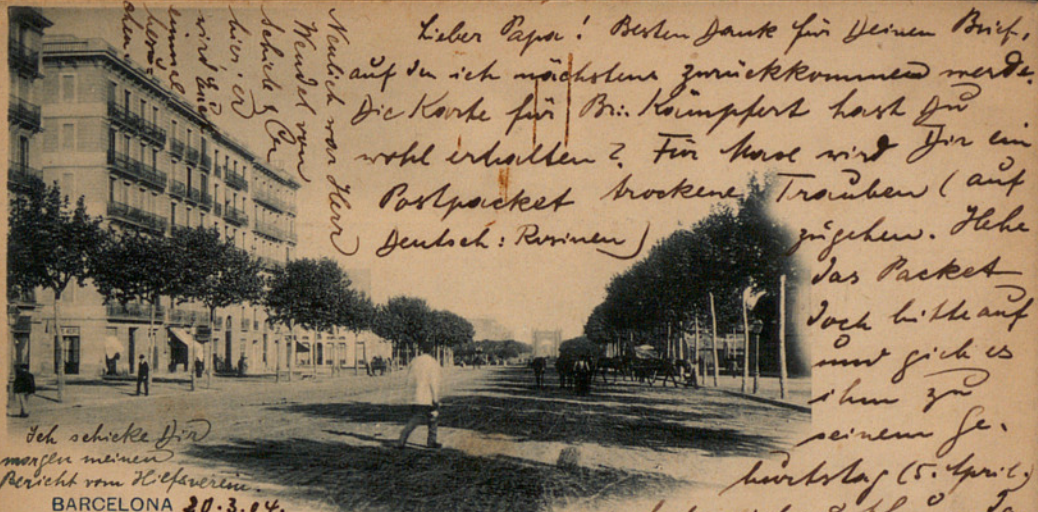 Lieber Papa! Besten Dank für Deinen Brief,
auf den ich nächstens zurückkommen werde.
Die Karte für Kämpfert hast Du
wohl erhalten? Für wird Dir ein
Postpacket trockene Trauben (auf
Deutsch: Rosinen) zugehen. Hebe
das Packet
doch bitte auf
und gieb es
ihm zu
seinem Ge-
burtstag (5. April.)
Neulich war Herr
Wendel von
Schicht & Co
hier, er
wird Euch
einmal
besu-
chen.
Ich schicke Dir
morgen meinen
Bericht vom Hilfsverein.
BARCELONA 20.3.04.